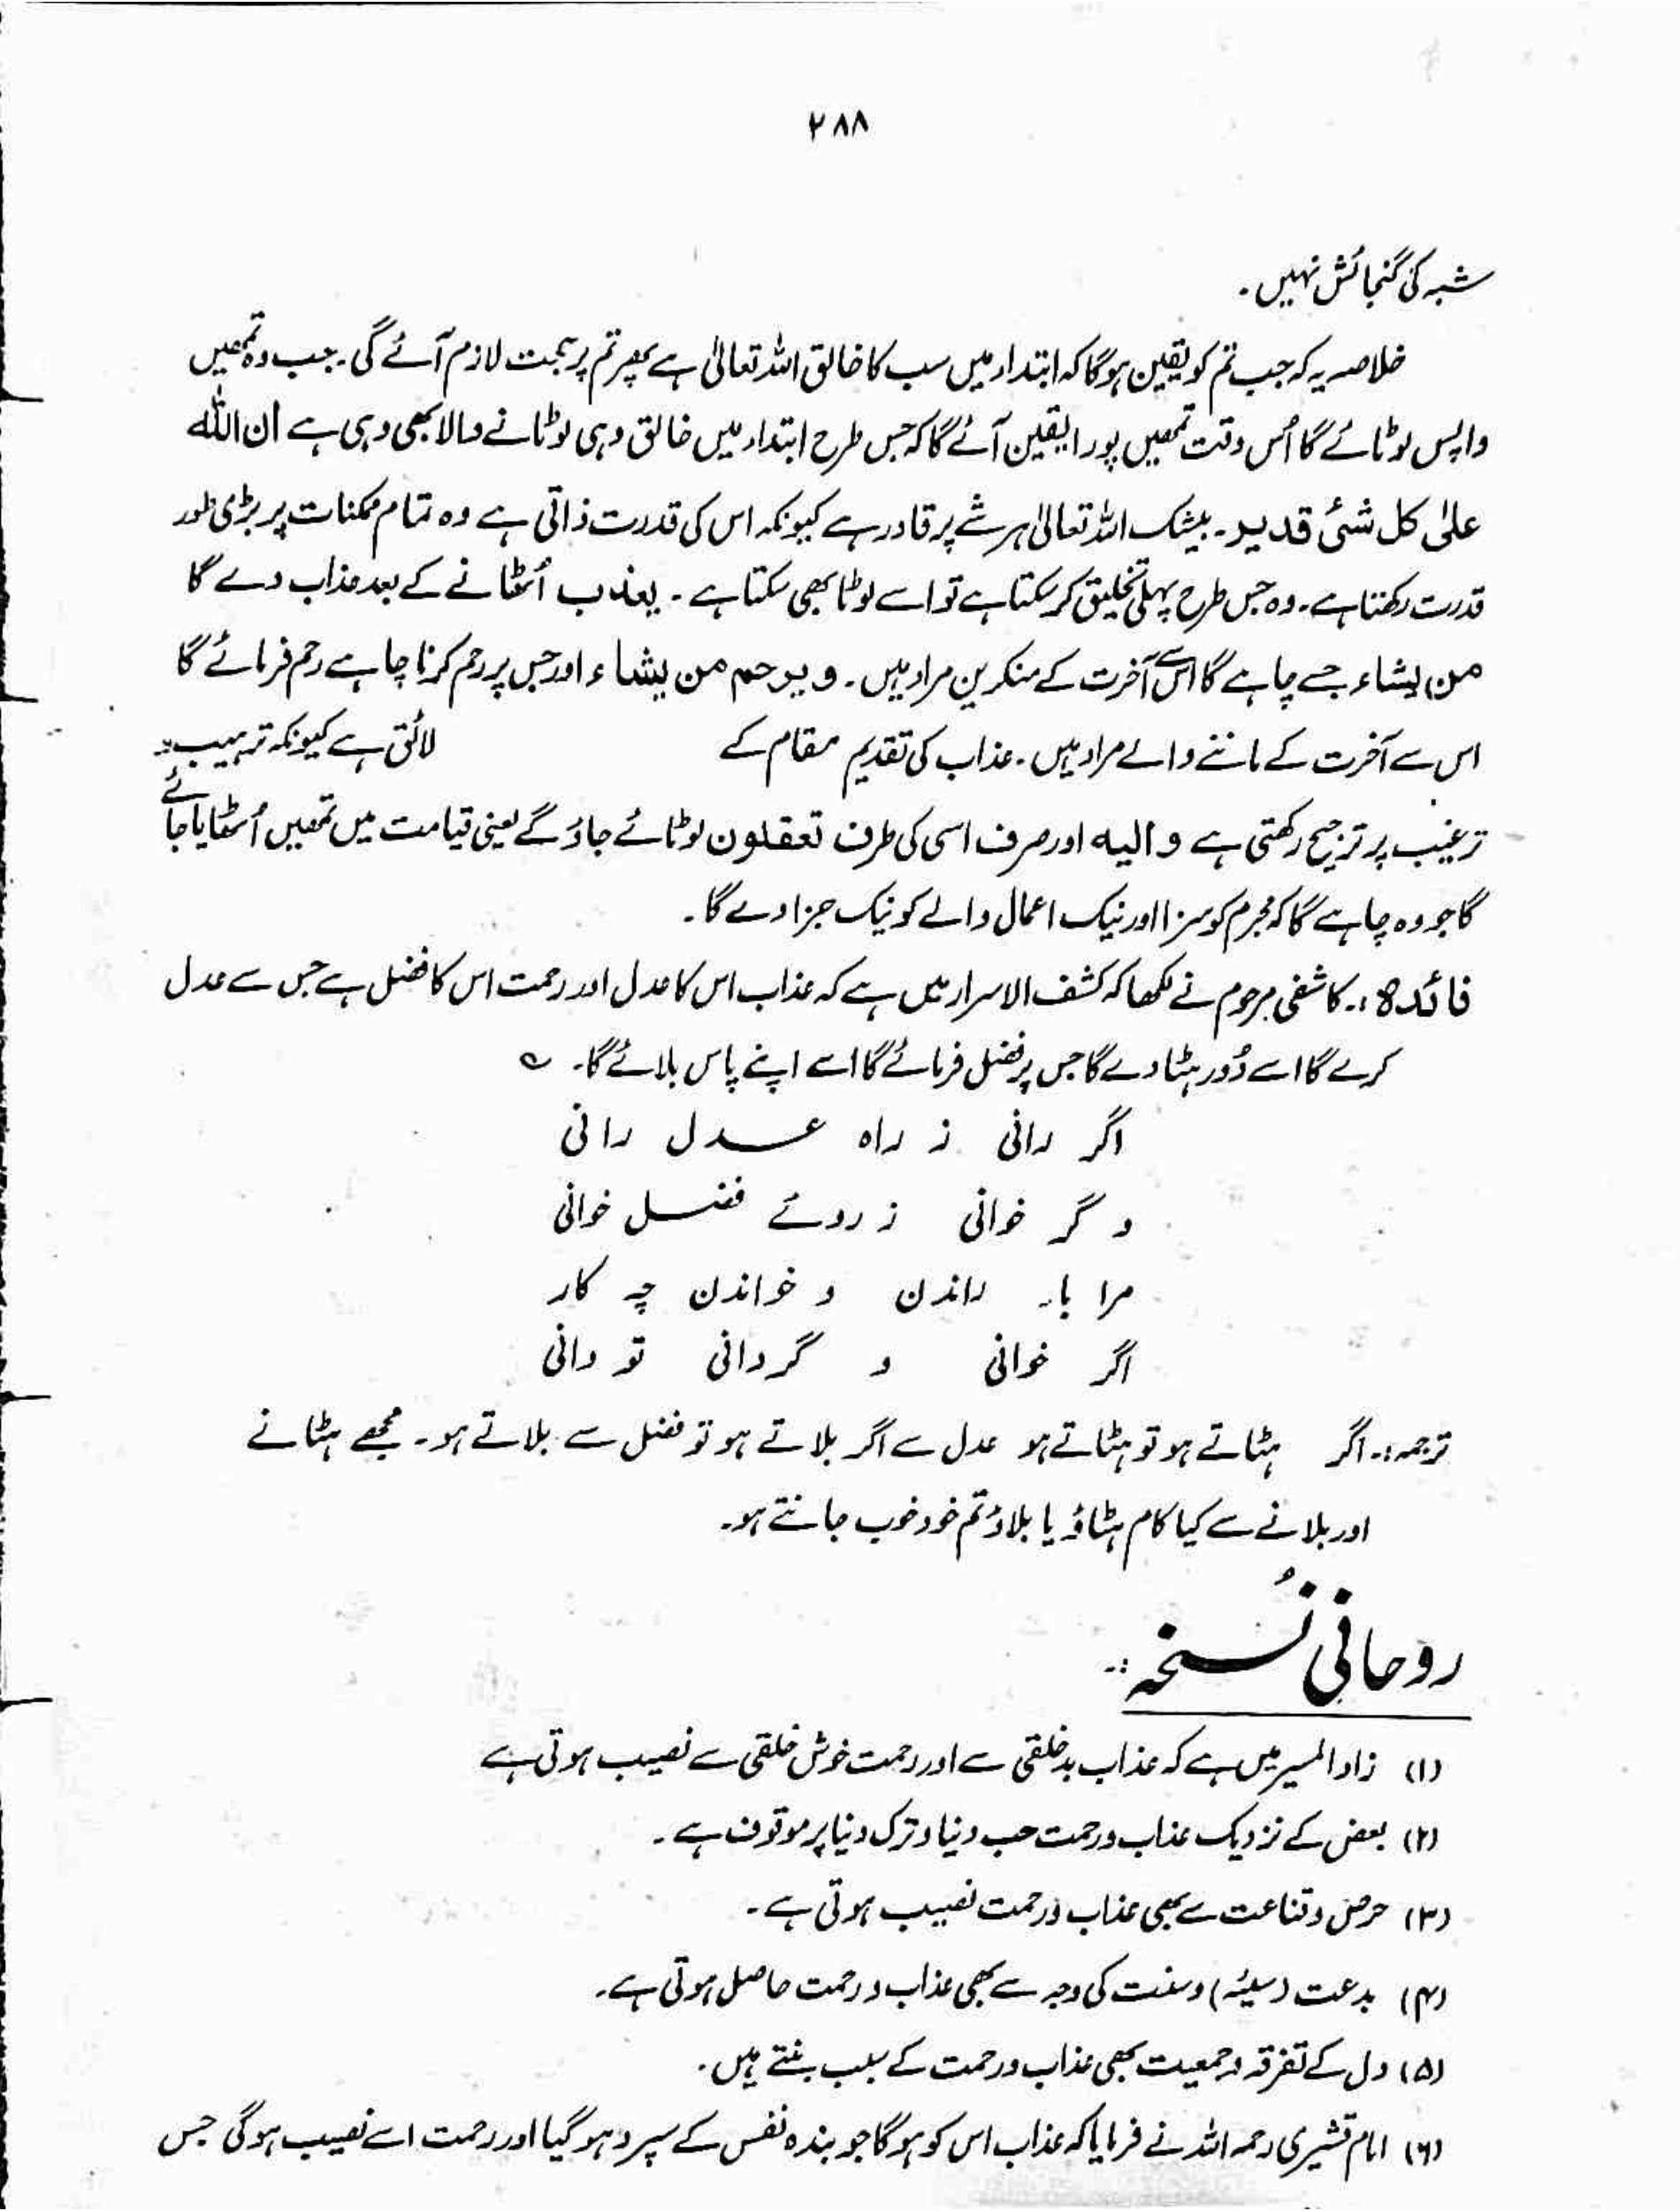 ۲۸۸
شبہ کی گنجائش نہیں۔
خلاصہ یہ کہ جب تم کو یقین ہوگا کہ ابتداء میں سب کا خالق اللہ تعالیٰ ہے پھر تم پر حجت لازم آئے گی۔ جب وہ تمھیں
واپس لوٹائے گا اُس وقت تمھیں پورا یقین آئے گا کہ جس طرح ابتداء میں خالق وہی لوٹانے والا بھی وہی ہے ان اللّٰہ
علیٰ کل شئی قدیر۔ بیشک اللہ تعالیٰ ہر شے پر قادر ہے کیونکہ اس کی قدرت ذاتی ہے وہ تمام ممکنات پر بڑی طور
قدرت رکھتا ہے۔ وہ جس طرح پہلی تخلیق کر سکتا ہے تو اسے لوٹا بھی سکتا ہے۔ یعذب اُٹھانے کے بعد عذاب دے گا
من یشاء جسے چاہے گا اس سے آخرت کے منکرین مراد ہیں۔ و یرحم من یشاء اور جس پر رحم کرنا چاہے رحم فرمائے گا
اس سے آخرت کے ماننے والے مراد ہیں۔ عذاب کی تقدیم مقام کے لائق ہے کیونکہ ترہیب
ترغیب پر ترجیح رکھتی ہے و الیه اور صرف اسی کی طرف تعقلون لوٹائے جاؤ گے یعنی قیامت میں تمھیں اُٹھایا جائے
گا جو وہ چاہے گا کہ مجرم کو سزا اور نیک اعمال والے کو نیک جزا دے گا۔
فائدہ:۔ کاشفی مرحوم نے لکھا کہ کشف الاسرار میں ہے کہ عذاب اس کا عدل اور رحمت اس کا فضل ہے جس سے عدل
کرے گا اسے دُور ہٹا دے گا جس پر فضل فرمائے گا اسے اپنے پاس بلائے گا۔ ؎
اگر رانی ز راہ عدل رانی
و گر خوانی ز روئے فضل خوانی
مرا با راندن و خواندن چہ کار
اگر خوانی و گردانی تو دانی
ترجمہ:۔ اگر ہٹاتے ہو تو ہٹاتے ہو عدل سے اگر بلاتے ہو تو فضل سے بلاتے ہو۔ مجھے ہٹانے
اور بلانے سے کیا کام ہٹاؤ یا بلاؤ تم خود خوب جانتے ہو۔
روحانی نُسخہ:۔
(۱) زاد المسیر میں ہے کہ عذاب بدخلقی سے اور رحمت خوش خلقی سے نصیب ہوتی ہے
(۲) بعض کے نزدیک عذاب و رحمت حب دنیا و ترک دنیا پر موقوف ہے۔
(۳) حرص و قناعت سے بھی عذاب و رحمت نصیب ہوتی ہے۔
(۴) بدعت (سیئہ) و سنت کی وجہ سے بھی عذاب و رحمت حاصل ہوتی ہے۔
(۵) دل کے تفرقہ و جمعیت بھی عذاب و رحمت کے سبب بنتے ہیں۔
(۶) امام قشیری رحمہ اللہ نے فرمایا کہ عذاب اس کو ہوگا جو بندہ نفس کے سپرد ہو گیا اور رحمت اسے نصیب ہوگی جس